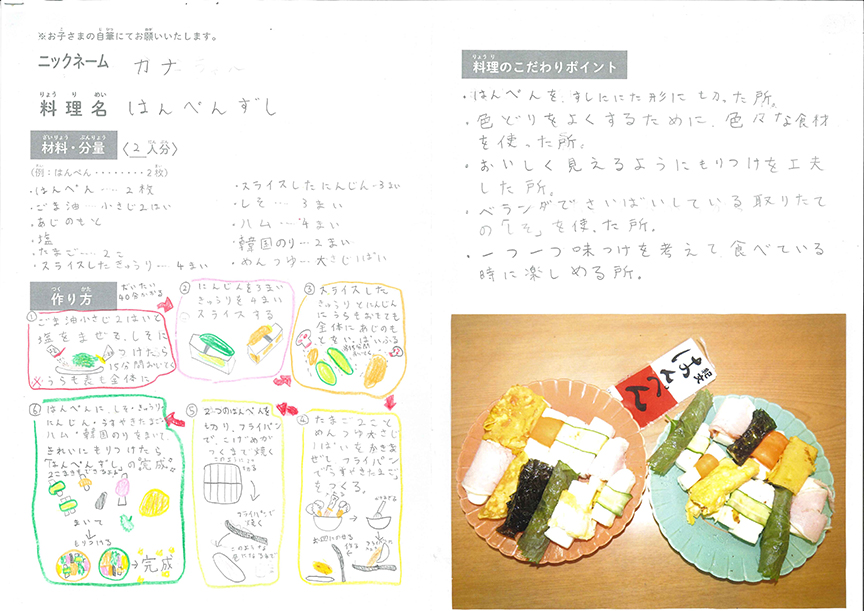 ※お子さまの自筆にてお願いいたします。
ニックネーム カナ
りょうりめい
料理名 はんぺんずし
ざいりょう ぶんりょう
材料・分量 〈2人分〉
(例:はんぺん・・・・・・・・2枚)
・はんぺん…‥2枚
・ごま油…小さじ2はい
・あじのもと
・塩
・たまご…‥2こ
・スライスしたきゅうり…‥4まい
・スライスしたにんじん…3まい
・しそ…‥3まい
・ハム…‥4まい
・韓国のり…2まい
・めんつゆ…大さじ1ぱい
つく かた
作り方
だいたい
40分かかる
① ごま油小さじ2はいと
塩をまぜを、しそに
つけたら
15分間おいてく
※うらも表も全体に
② にんじんを3まい
きゅうりを4まい
スライスする
③ スライスした
きゅうりとにんじん
にうらもおもても
全体にあじのも
④ たまご2こと
めんつゆ大さじ
1ぱいをかきま
ぜて、フライパン
で「うすやきたまご」
をつくる。
⑤ 2つのはんぺんを
切り、フライパン
で、こげめが
つくまで焼く
フライパンで
焼く
⑥ はんぺんに、しそ・きゅうり・
にんじん・うすやきたまご・
ハム・韓国のりをまいて、
きれいにもりつけたら
「はんぺんずし」の"完成"
まいて
もりつける
→完成
りょうり
料理のこだわりポイント
・はんぺんを、すしににた形に切った所。
・色どりをよくするために、色々な食材
を使った所。
・おいしく見えるようにもりつけを工夫
した所。
・ベランダでさいばいしている取りたて
の「しそ」を使った所。
・一つ一つ味つけを考えて、食べている
時に楽しめる所。
紀文
はんぺん